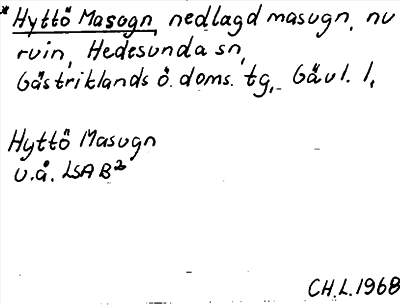 * Hyttö Masugn, nedlagd masugn, nu
ruin, Hedesunda sn,
Gästriklands ö. doms. tg, Gävl. l.
Hyttö Masugn
u.å. LSA B2
CH.L. 1968